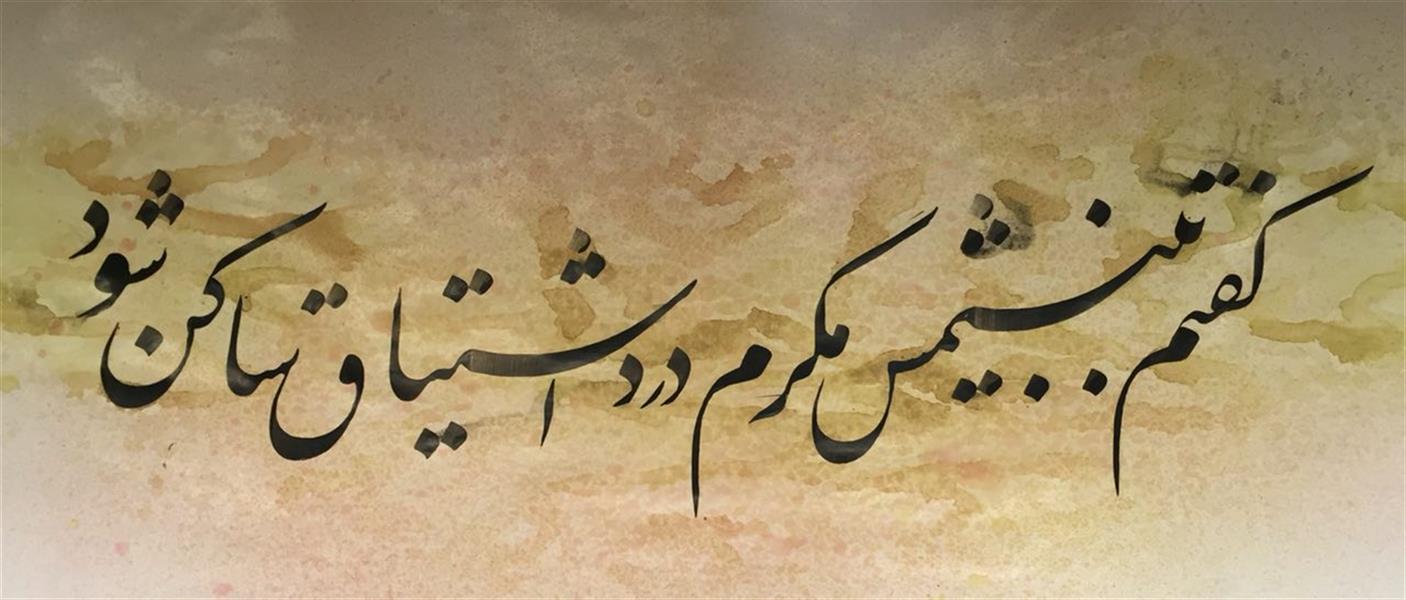 گفتم ببینمش مگرم درد اشتیاق ساکن شود